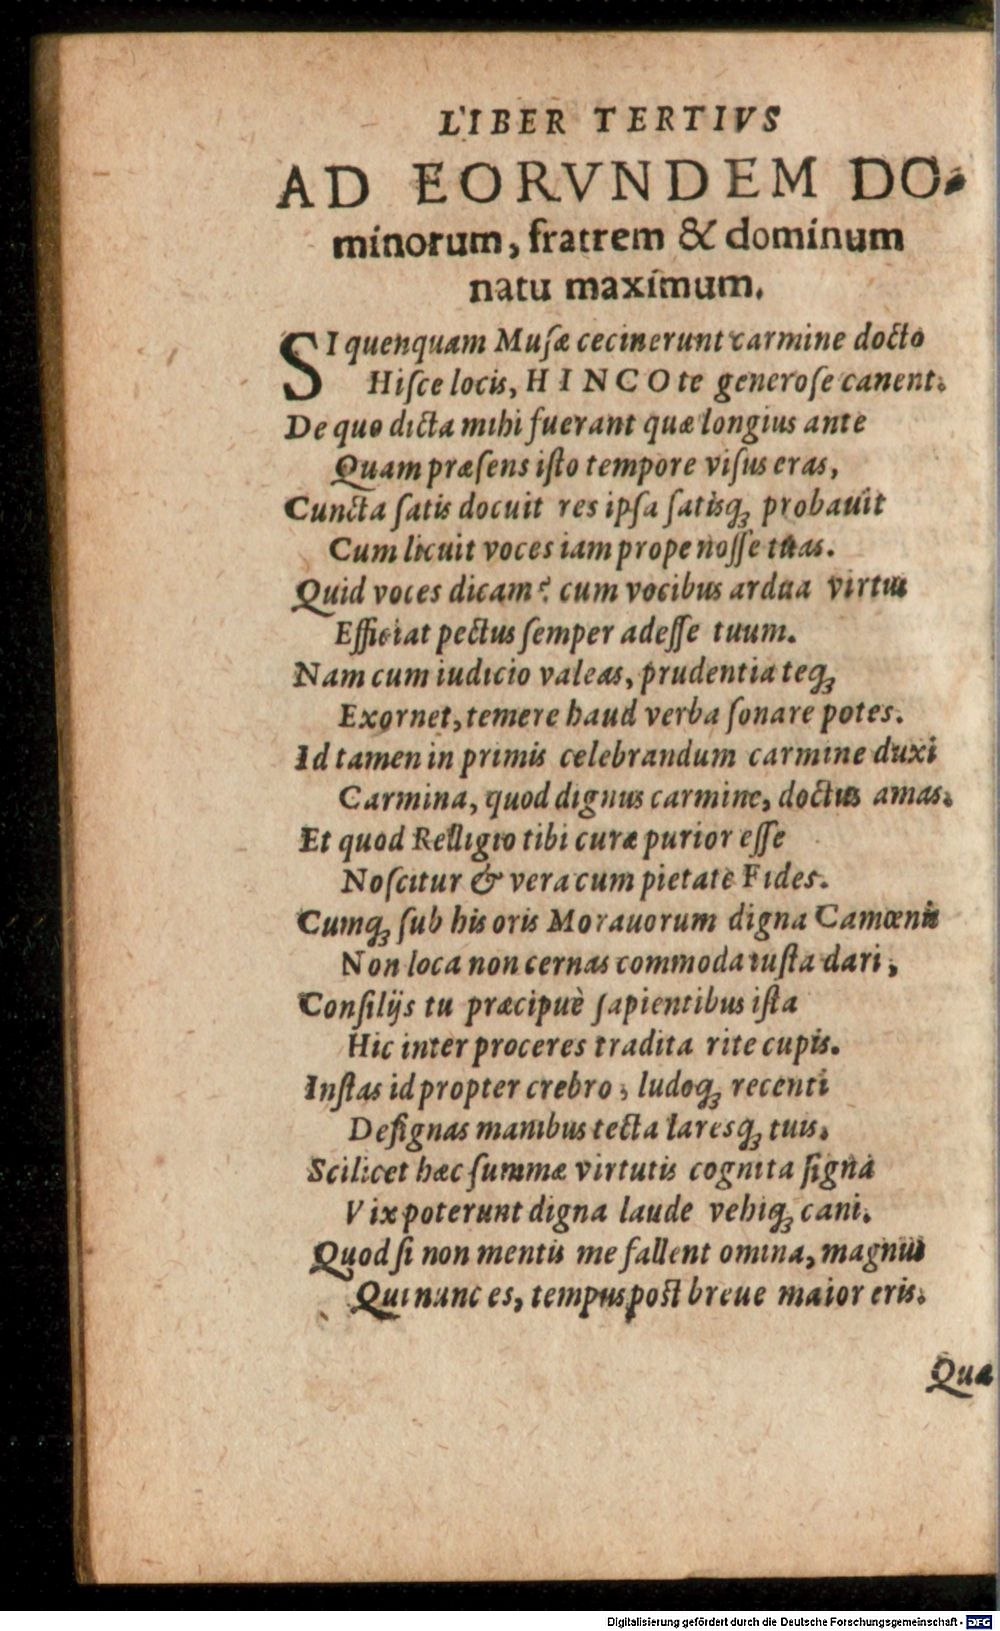 LIBER TERTIVS
AD EORVNDEM DO-
minorum, fratrem & dominum
natu maximum.
SI quenquam Musæ cecinerunt carmine docto
Hisce locis, HINCO te generose canent.
De quo dicta mihi fuerant quæ longius ante
Quam præsens isto tempore visus eras,
Cuncta satis docuit res ipsa satisqꝫ probauit
Cum licuit voces iam prope nosse tuas.
Quid voces dicam? cum vocibus ardua virtus
Efficiat pectus semper adesse tuum.
Nam cum iudicio valeas, prudentia teqꝫ
Exornet, temere haud verba sonare potes.
Id tamen in primis celebrandum carmine duxi
Carmina, quod dignus carmine, doctus amas.
Et quod Relligio tibi curæ purior esse
Noscitur & vera cum pietate Fides.
Cumqꝫ sub his oris Morauorum digna Camœnis
Non loca non cernas commoda iusta dari,
Consilijs tu præcipuè sapientibus ista
Hic inter proceres tradita rite cupis.
Instas id propter crebro, ludoqꝫ recenti
Designas manibus tecta laresqꝫ tuis.
Scilicet hæc summæ virtutis cognita signa
Vix poterunt digna laude vehiqꝫ cani.
Quod si non mentis me fallent omina, magnus
Qui nunc es, tempus post breue maior eris.
Quæ
Digitalisierung gefördert durch die Deutsche Forschungsgemeinschaft - DFG